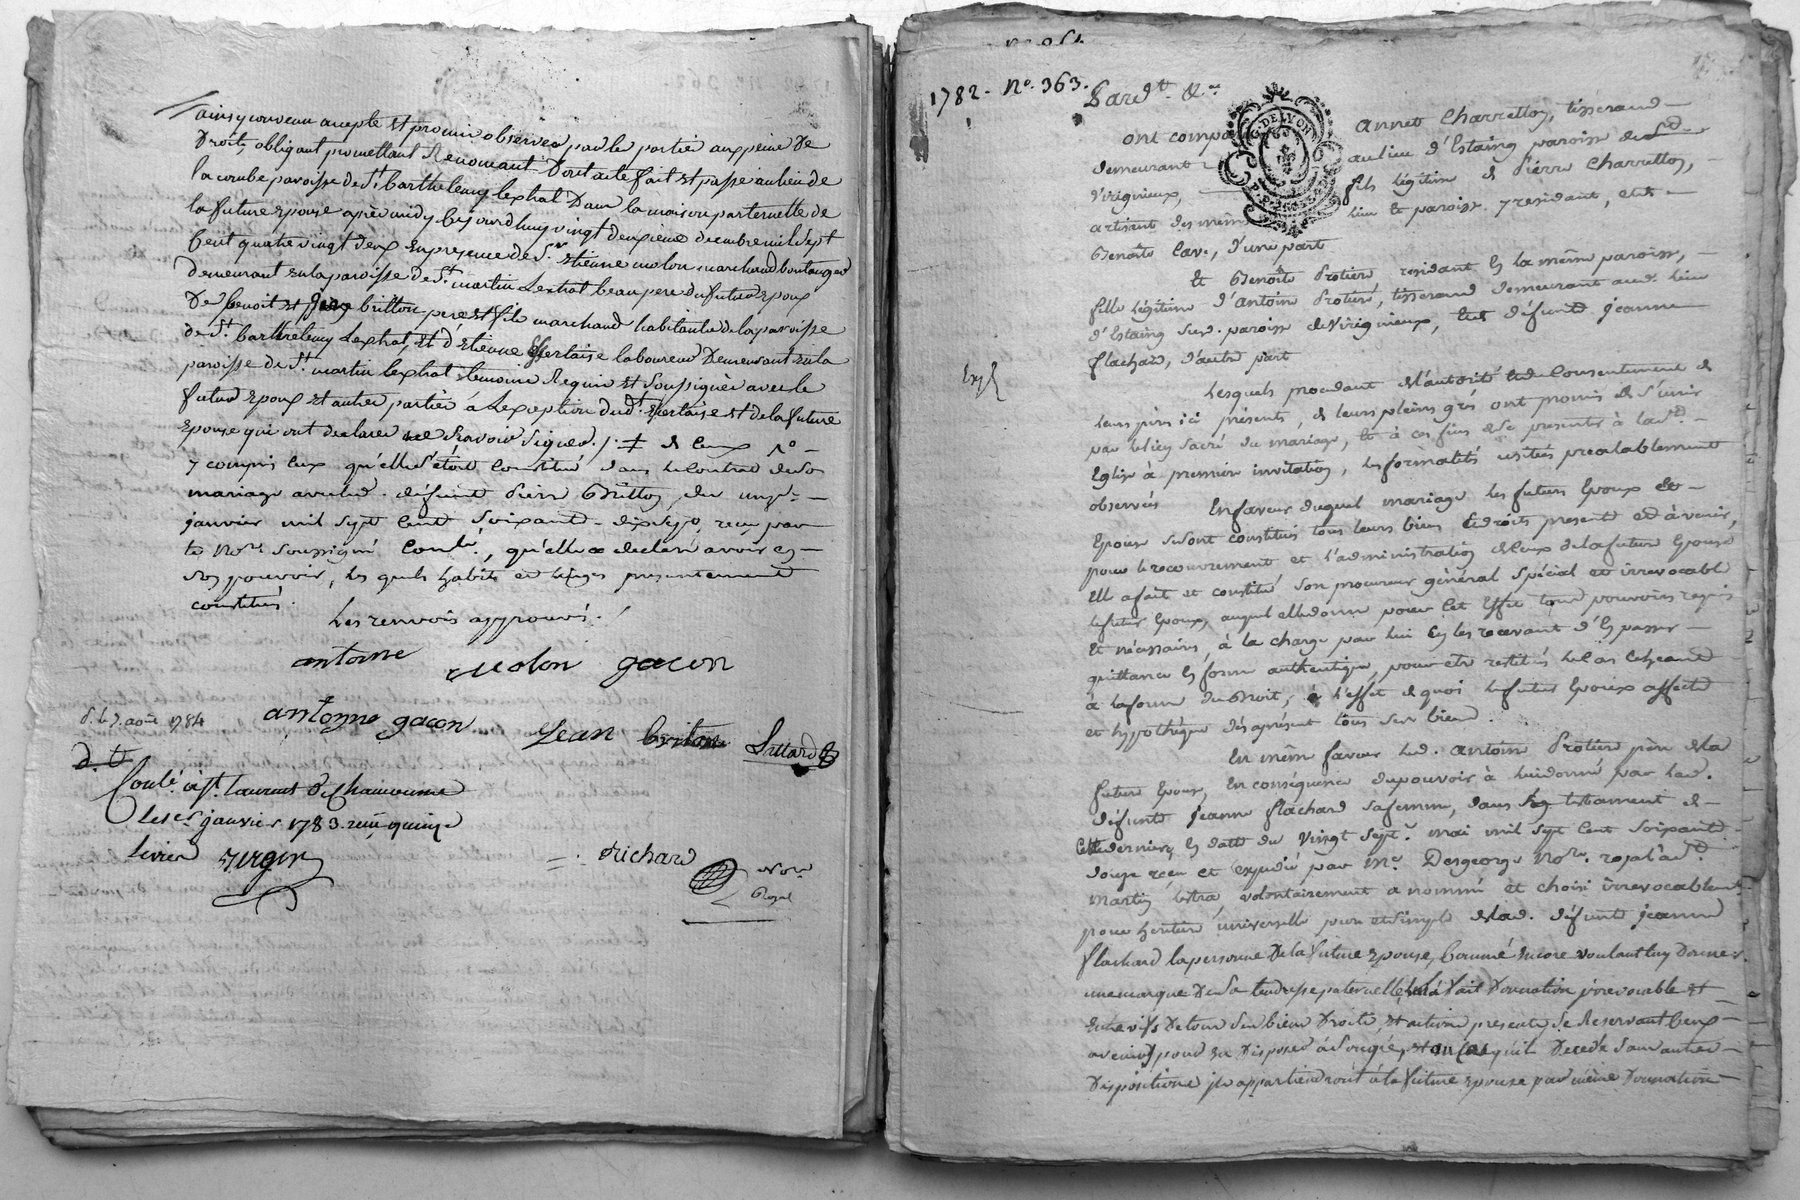 ainsy convenu accepté et promis observer par les parties aux peine De
Droits, obligeant promettant Renoncant Dont acte fait et passé au lieu de
la combe paroisse de St. barthelemy lestrat Dans la maison paternelle de
la future Epouse après midy ce jourd'huy vingt deuxieme decembre mil sept
cent quatre vingt deux En presence de sr. Etienne molon marchand boulanger
demeurant en la paroisse de St. martin Lestrat beau pere du futur Epoux
De benoit et jean britton pere et fils marchand habitants de la paroisse
de St. barthelemy Lestrat, et d'Etienne laboureur Demeurant en la
paroisse de St. martin lestrat temoins Requis et soussignés avec le
futur Epoux et autres parties à Lexception dud. et de la future
Epouse qui ont declaré ne scavoir signer. /. ǂ de ceux
y compris ceux qu'elle s'étoit constitué dans le contrat de son
mariage avec led. défunt Pierre Britton, du onze
janvier mil sept cent soixante-dix sept, reçu par
le Nore. soussigné Conlé, qu'elle a declaré avoir en
son pouvoir, les quels habits et linges présentement
constitués.
Les renvois approuvés.
antoine molon gacon
d. le 7. aoùt 1784
antoyne gacon Jean briton
Conlé. à St. Laurent de Chamousset
le 1er janvier 1783. reçu quinze
livres
Richard Nore. Royal
1782 - No. 363.
Pardt. &a.
ont comparu Annet Charretton, tisserand
demeurant au lieu d'Estaing paroisse dud.
Virigneux, fils légitime de Pierre Charretton,
artisant des même lieu et paroisse y residant, et de
Benoîte Cave, d'une part
Et Benoîte Protiere residant en la même paroisse,
fille légitime d'Antoine Protiere, tisserand demeurant aud. lieu
d'Estaing sud. paroisse de Virigneux, et de défunte Jeanne
flachard, d'autre part
Exp.
Lesquels procédant de l'autorité et du Consentement de
leurs pères ici présents, de leurs pleins grés ont promis de s'unir
par le lien sacré du mariage, et à ces fins de se presenter à lad.
Eglise à premiere invitation, les formalités usitées prealablement
observées. En faveur duquel mariage les futurs Epoux et
Epouse se sont constitués tous leurs biens et droits presents et à venir,
pour le recouvrement et l'administration de ceux de la future Epouse
elle a fait et constitué son procureur général spécial et irrevocable
le futur Epoux, auquel elle donne pour cet effet tous pouvoirs requis
et nécessaires, à la charge par lui en les recevant d'en passer
quittance en forme authentique, pour être restitués le cas echeant
à la forme du Droit, à l'effet de quoi le futur Epoux affecte
et hypothéque dès à présent tous ses biens.
En même faveur led. antoine Protiere père de la
future Epouse, en conséquence du pouvoir à lui donné par lad.
défunte Jeanne flachard sa femme, dans son testament de
cette derniere, en datte du vingt sept. mai mil sept cent soixante
douze reçu et expédié par Me. Desgeorge Nore. royal aud.
martin lestra, volontairement a nommé et choisi irrevocablemt.
pour heritiere universelle pure et simple de lad. défunte jeanne
flachard la personne De la future Epouse, comme encore voulant luy Donner
une marque De Sa tendresse paternelle lui à fait Donation jrrevocable et
entre vifs De tous Ses biens Droits, et actions presents, Se Reservant Ceux
avenir pour En Disposer à Son gré, et au Cas qu'il Decede Sans autre
Dispositions ils appartiendront à la future Epouse par même Donation